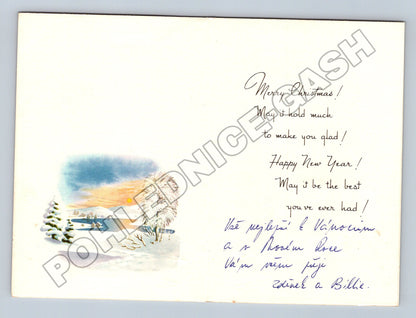 Merry Christmas!
May it hold much
to make you glad!
Happy New Year!
May it be the best
you've ever had!
Vše nejlepší k Vánocum
a v Novém Roce
Vám všem přejí
Zdeněk a Billie.
POHLEDNICE-GASH